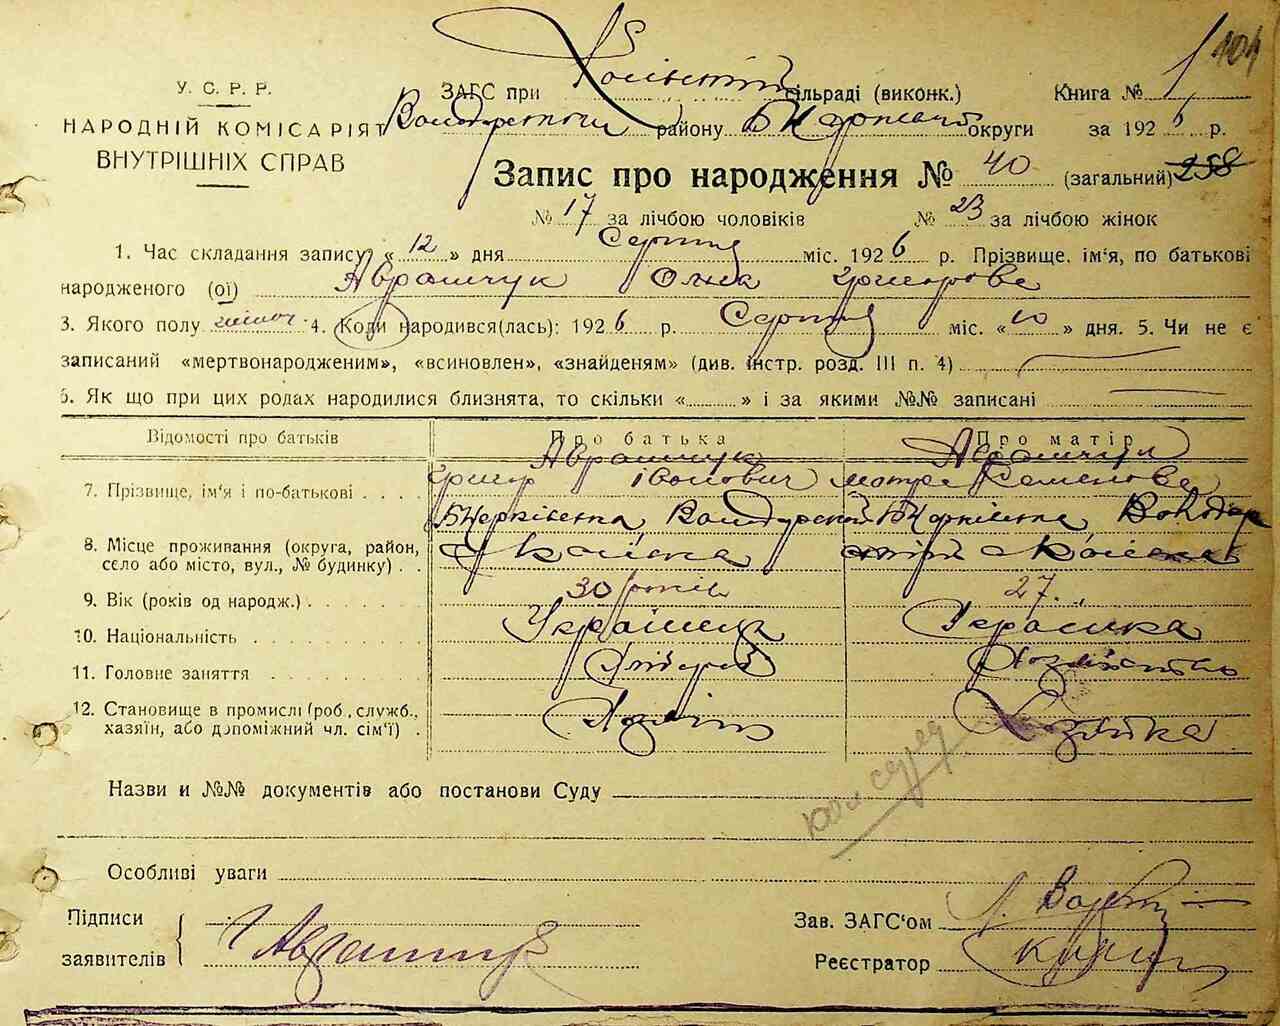 104
У. С. Р. Р.
НАРОДНІЙ КОМІСАРІЯТ
ВНУТРІШНІХ СПРАВ
ЗАГС при сільраді (виконк.) Книга № 1
району БЦерківської округи за 1926 р.
Запис про народження № 40 (загальний) 258
№ 17 за лічбою чоловіків № 23 за лічбою жінок
1. Час складання запису „ 12 " дня Серпня міс. 1926 р. Прізвище, ім'я, по батькові
народженого (ої) Аврамчук Ольга Григорове
3. Якого полу жіноч. 4. Коли народився(лась): 1926 р. Серпня міс. «10» дня. 5. Чи не є
записаний «мертвонародженим», «всиновлен», «знайденям» (див. інстр. розд. III п. 4)
6. Як що при цих родах народилися близнята, то скільки « » і за якими №№ записані
Відомості про батьків Про батька Про матір
Аврамчук Аврамчук
7. Прізвище, ім'я і по-батькові Григор Іванович Мотря Семенове
БЦерківська Володарський БЦерківська Володар
8. Місце проживання (округа, район,
село або місто, вул., № будинку)
9. Вік (років од народж.) 30 років 27.
10. Національність Українець Українка
11. Головне заняття Хлібороб Хазяйство
12. Становище в промислі (роб., служб., Хазяїн Хазяйка
хазяїн, або допоміжний чл. сім'ї)
Назви и №№ документів або постанови Суду
Особливі уваги
Підписи
заявителів Г Аврамчук
Зав. ЗАГС'ом
Реєстратор